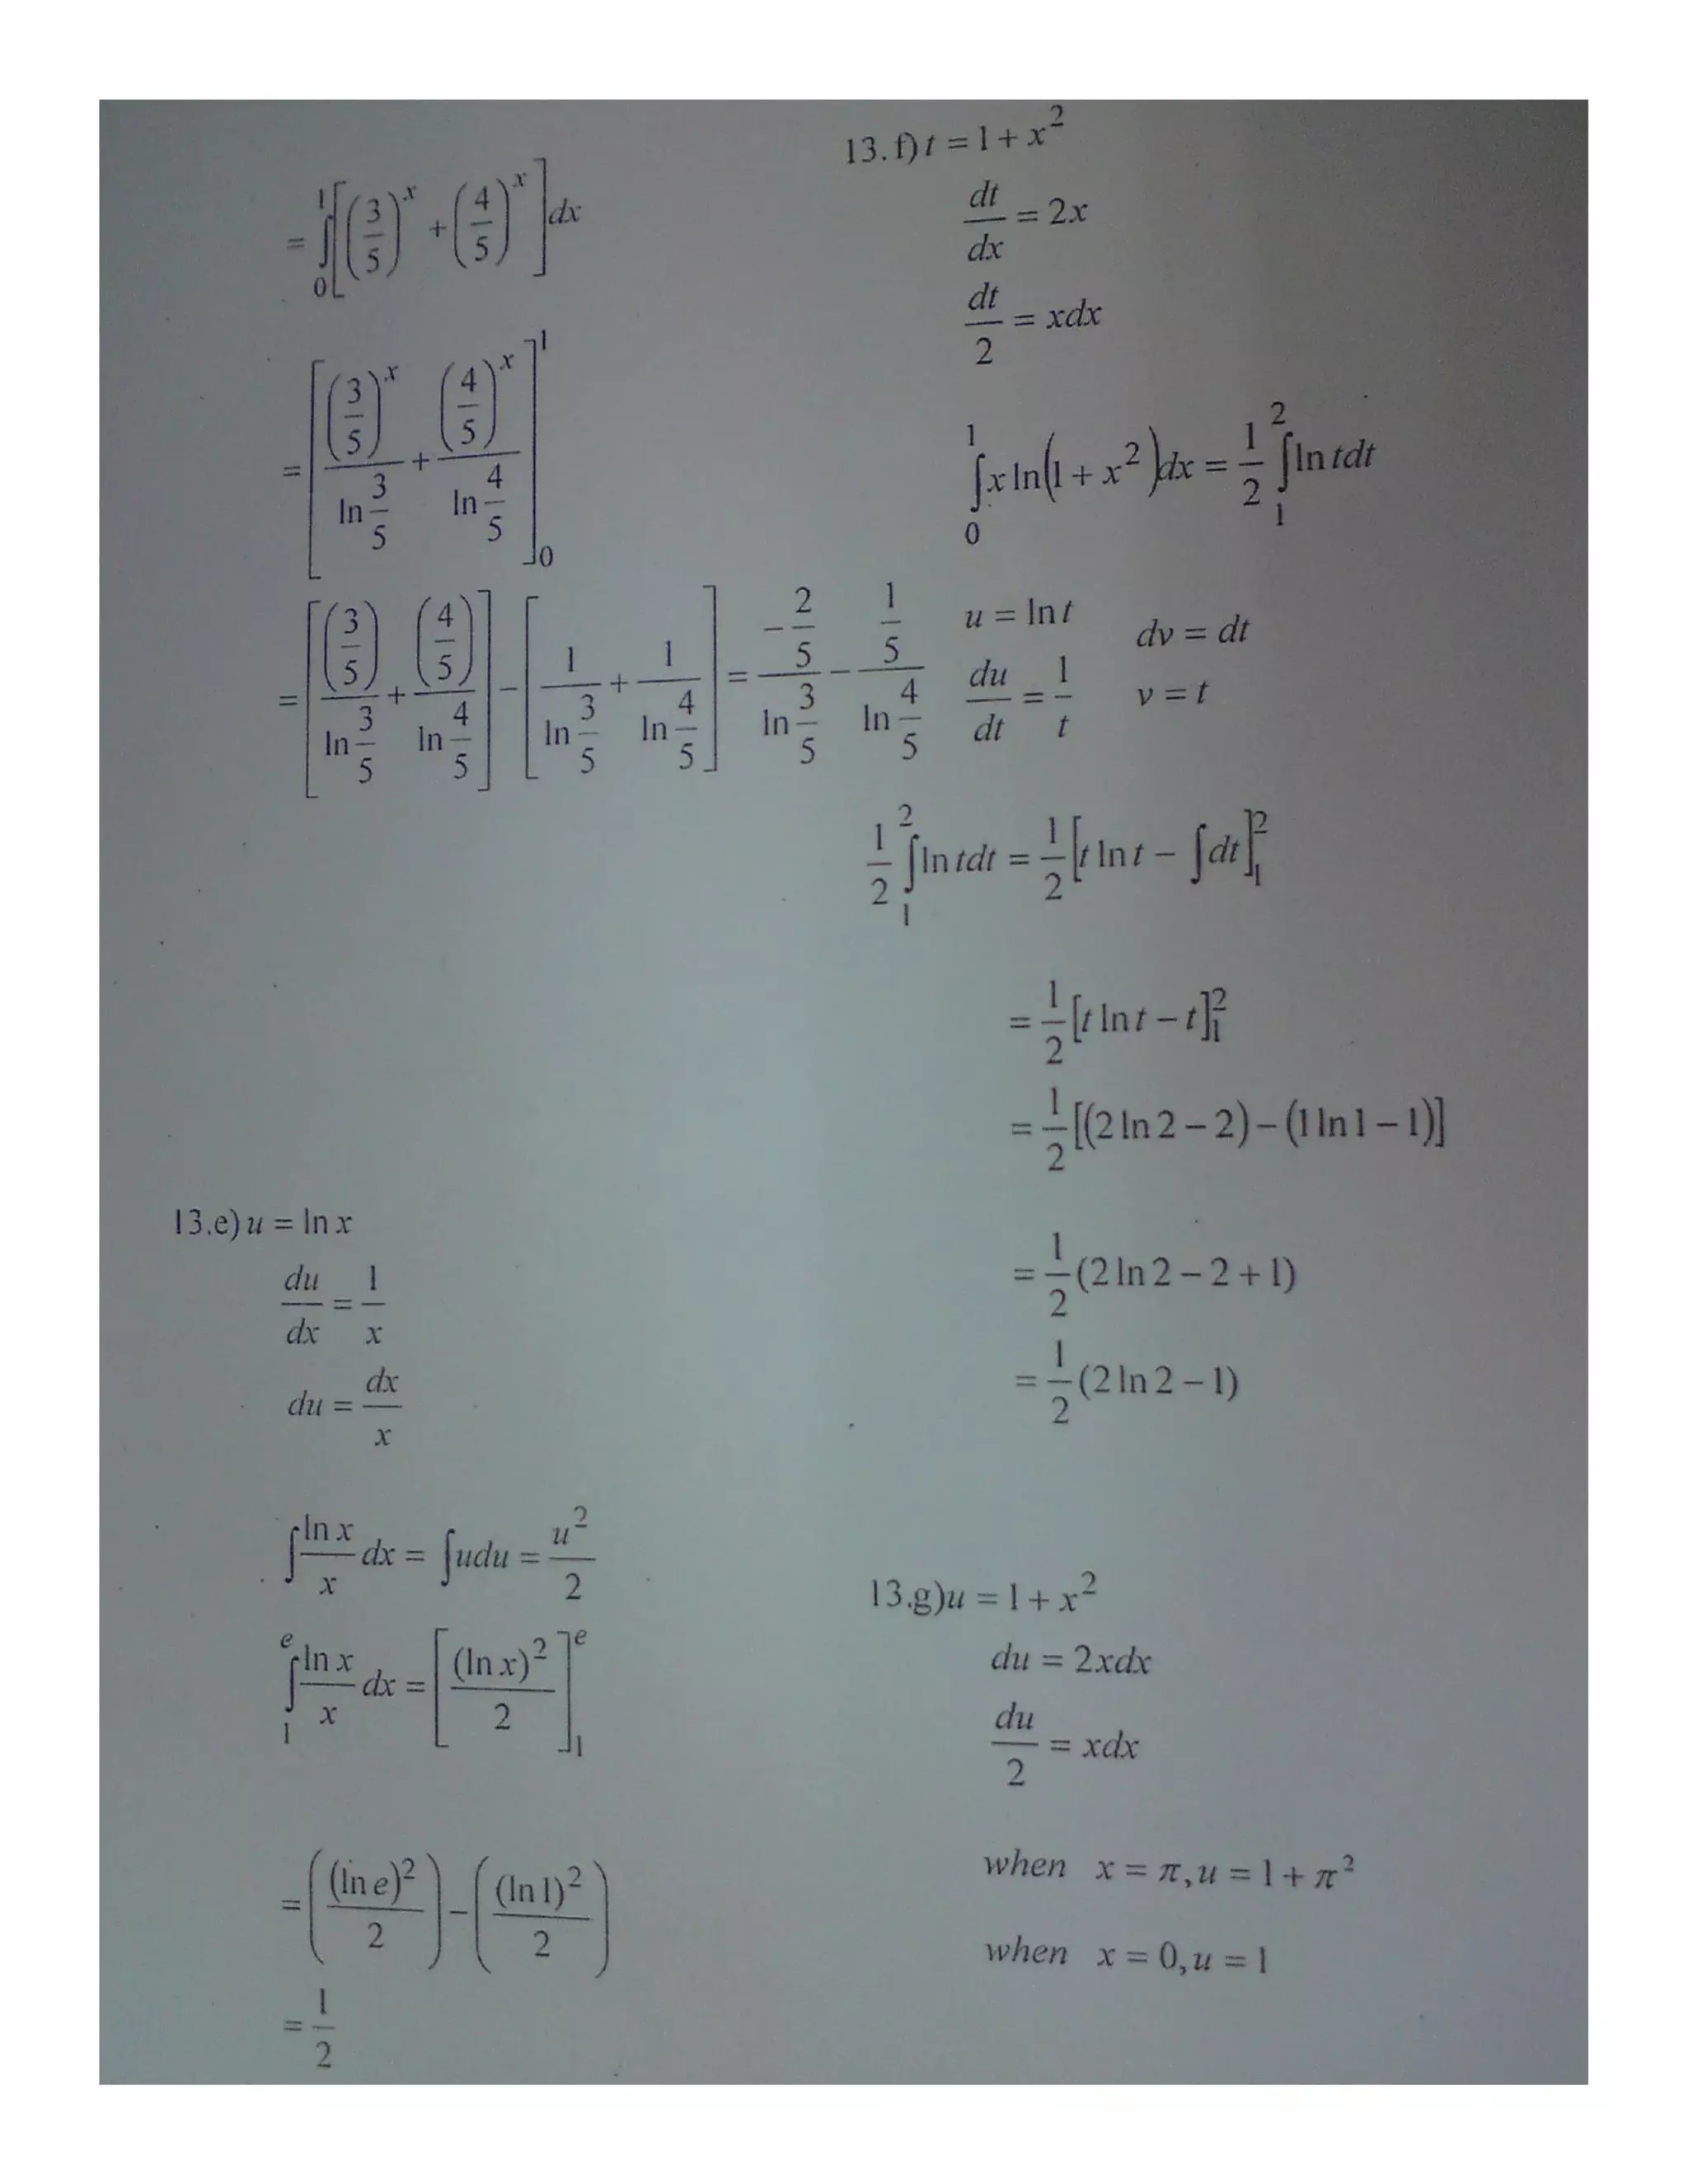 = ∫₀¹ [(3/5)^x + (4/5)^x] dx
= [(3/5)^x / ln 3/5 + (4/5)^x / ln 4/5]₀¹
= [(3/5) / ln 3/5 + (4/5) / ln 4/5] − [1 / ln 3/5 + 1 / ln 4/5] = −2/5 / ln 3/5 − 1/5 / ln 4/5
13.e) u = ln x
du/dx = 1/x
du = dx/x
∫ ln x / x dx = ∫ udu = u²/2
∫₁ᵉ ln x / x dx = [(ln x)² / 2]₁ᵉ
= ((ln e)² / 2) − ((ln 1)² / 2)
= 1/2
13. f) t = 1 + x²
dt/dx = 2x
dt/2 = xdx
∫₀¹ x ln(1 + x²)dx = 1/2 ∫₁² ln tdt
u = ln t dv = dt
du/dt = 1/t v = t
1/2 ∫₁² ln tdt = 1/2 [t ln t − ∫dt]₁²
= 1/2 [t ln t − t]₁²
= 1/2 [(2 ln 2 − 2) − (1 ln 1 − 1)]
= 1/2 (2 ln 2 − 2 + 1)
= 1/2 (2 ln 2 − 1)
13.g) u = 1 + x²
du = 2xdx
du/2 = xdx
when x = π, u = 1 + π²
when x = 0, u = 1